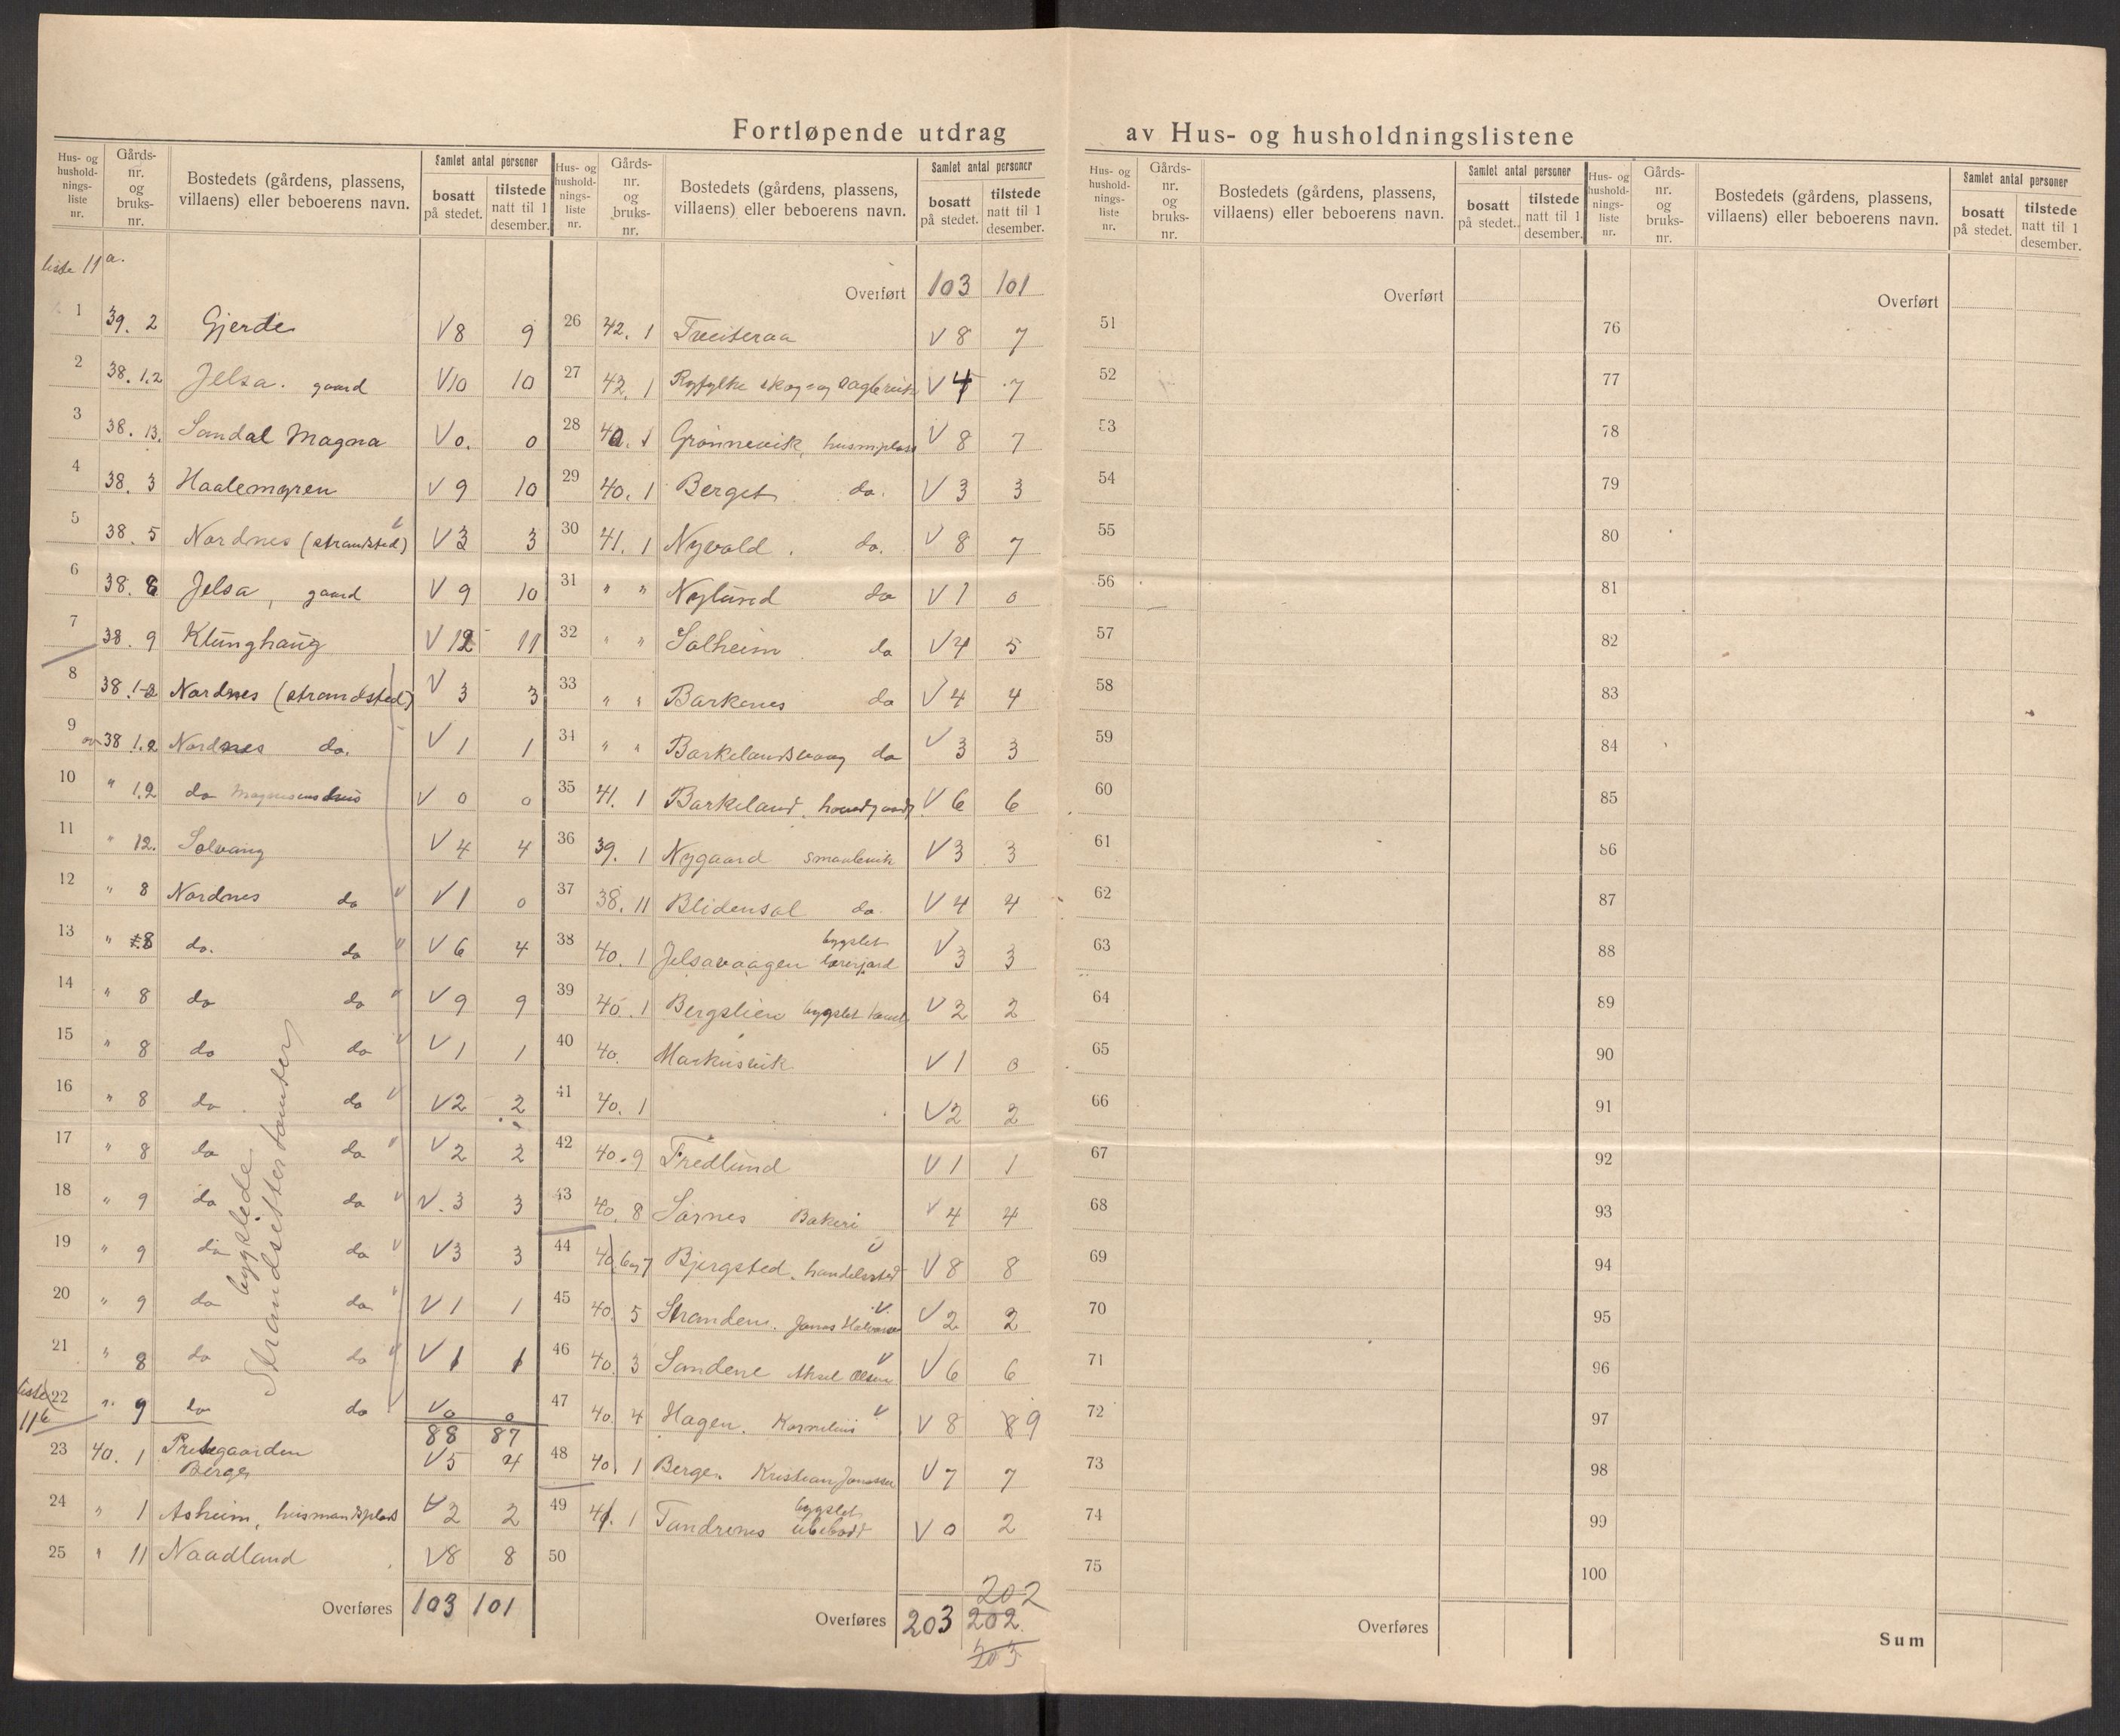 Fortløpende utdrag av Hus- og husholdningslistene
Hus- og husholdningsliste nr. | Gårdsnr. og bruksnr. | Bostedets (gårdens, plassens, villaens) eller beboerens navn. | Samlet antal personer | bosatt på stedet. | tilstede natt til 1 desember.
liste 11 a.
1 39. 2 Gjerde V 8 9
2 38. 1.2 Jelsa. gaard V 10 10
3 38. 13. Sandal Magna V 0. 0
4 38. 3 Haalemyren V 9 10
5 38. 5 Nordnes (strandsted) V 3 3
6 38. 6 Jelsa, gaard V 9 10
7 38. 9 Klunghaug V 12 11
8 38. 1-2 Nordnes (strandsted) V 3 3
9 38 1.2 Nordnes do. V 1 1
10 " 1.2 do V 0 0
11 " 12. Solvang V 4 4
12 " 8 Nordnes do V 1 0
13 " 8 do. do V 6 4
14 " 8 do do V 9 9
15 " 8 do do V 1 1
16 " 8 do do V 2 2
17 " 8 do do V 2 2
18 " 9 do do V 3 3
19 " 9 do do V 3 3
20 " 9 do do V 1 1
21 " 8 do do V 1 1
liste 11 b
22 " 9 do do V 0 0
bygslede
Strandsittertomter
88 87
23 40. 1 Prestegaarden Berge V 5 4
24 " 1 Asheim, husmandsplads V 2 2
25 " 11 Naadland V 8 8
Overføres 103 101
Hus- og husholdningsliste nr. | Gårdsnr. og bruksnr. | Bostedets (gårdens, plassens, villaens) eller beboerens navn. | Samlet antal personer | bosatt på stedet. | tilstede natt til 1 desember.
Overført 103 101
26 42. 1 V 8 7
27 42. 1 Ryfylke skog og V 4 7
28 40. 1 Grønnevik, husm.plass V 8 7
29 40. 1 Berget do. V 3 3
30 41. 1 Nyvold. do. V 8 7
31 " " Nylund do V 1 0
32 " " Solheim do V 4 5
33 " " Barkenes do V 4 4
34 " " Barkelandsvaag do V 3 3
35 41. 1 Barkeland, V 6 6
36 39. 1 Nygaard smaabruk V 3 3
37 38. 11 Blidensol do. V 4 4
38 40. 1 Jelsavaagen bygslet lærerjord V 3 3
39 40. 1 Bergslien bygslet V 2 2
40 40. Markusvik V 1 0
41 40. 1 V 2 2
42 40. 9 Fredlund V 1 1
43 40. 8 Sørnes Bakeri V 4 4
44 40 6 og 7 Bjergsted, handelssted V 8 8
45 40 5 Stranden. Jonas Halvorsen V 2 2
46 40 3 Sandene Aksel Olsen V 6 6
47 40. 4 Hagen. Kornelius V 8 8 9
48 40. 1 Berge. Kristian Jonassen V 7 7
49 41. 1 Tandrenes bygslet ubebodd V 0 2
50
202
Overføres 203 202.
203
Hus- og husholdningsliste nr. | Gårdsnr. og bruksnr. | Bostedets (gårdens, plassens, villaens) eller beboerens navn. | Samlet antal personer | bosatt på stedet. | tilstede natt til 1 desember.
Overført
51
52
53
54
55
56
57
58
59
60
61
62
63
64
65
66
67
68
69
70
71
72
73
74
75
Overføres
Hus- og husholdningsliste nr. | Gårdsnr. og bruksnr. | Bostedets (gårdens, plassens, villaens) eller beboerens navn. | Samlet antal personer | bosatt på stedet. | tilstede natt til 1 desember.
Overført
76
77
78
79
80
81
82
83
84
85
86
87
88
89
90
91
92
93
94
95
96
97
98
99
100
Sum